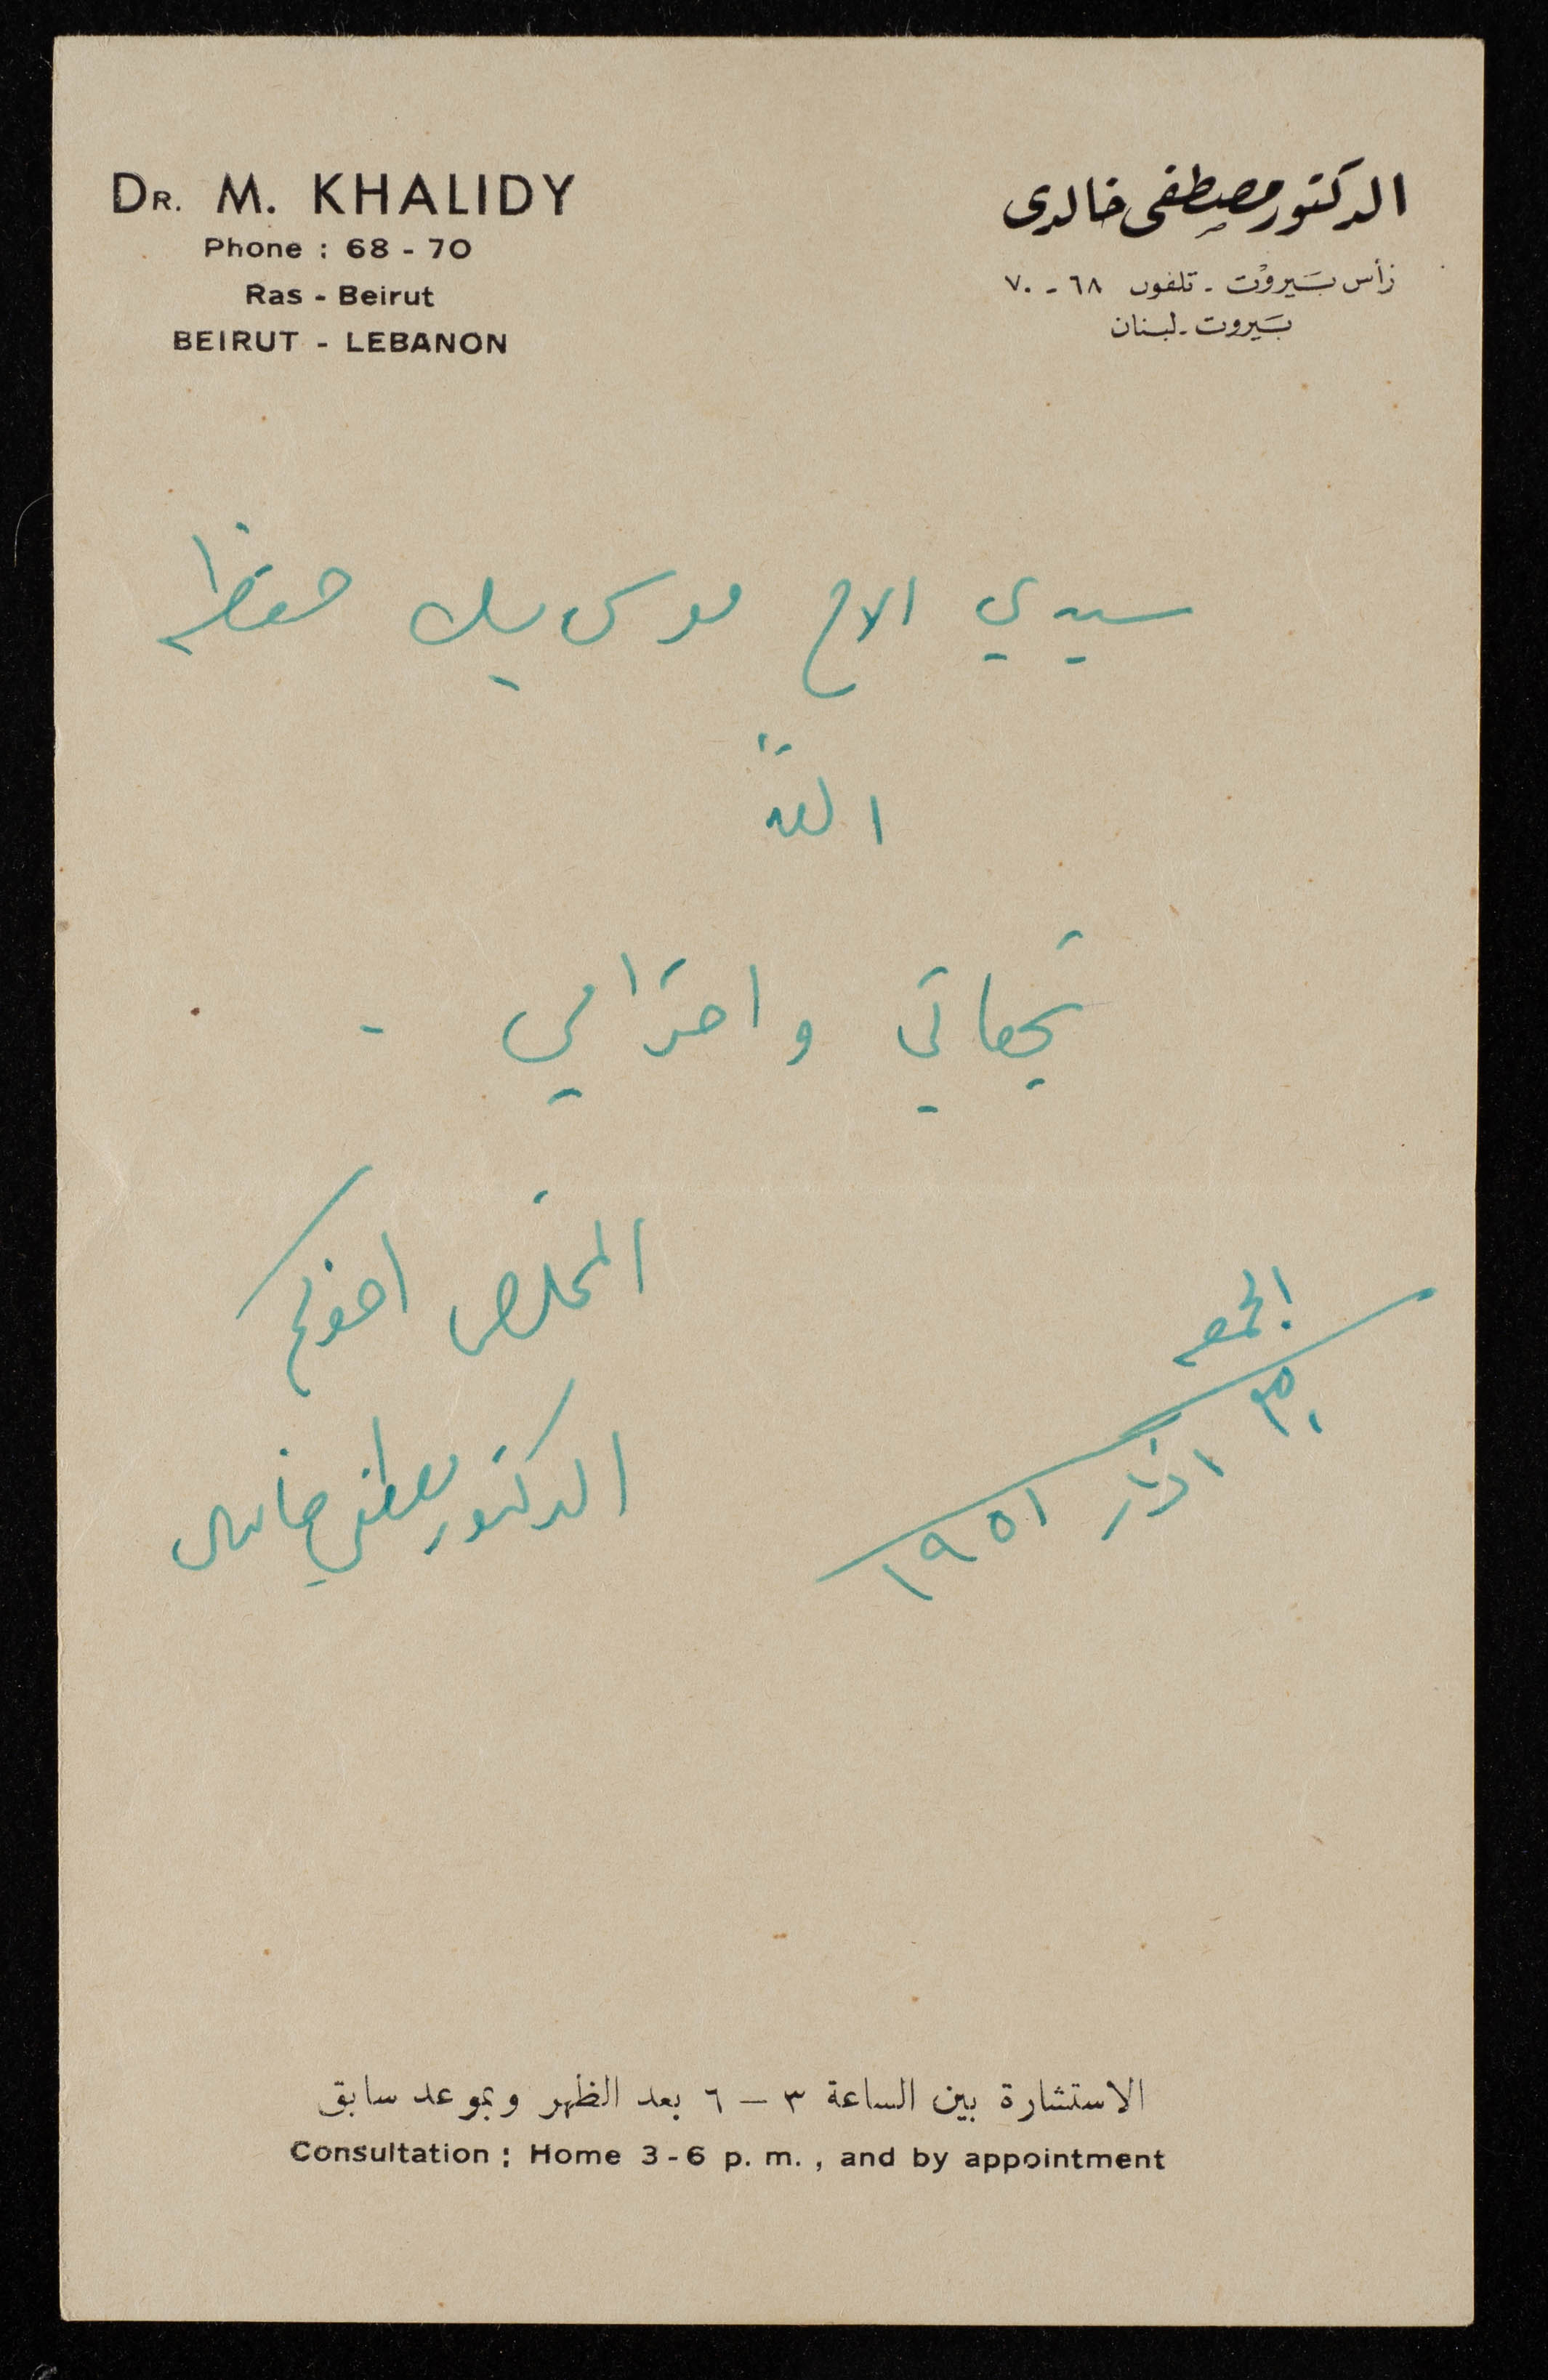 DR. M. KHALIDY
Phone : 68 - 70
Ras - Beirut
BEIRUT - LEBANON
الدكتور مصطفى خالدى
رأس بيروت - تلفون ٦٨ - ٧٠
بيروت - لبنان
سيدي الاخ موسى بك حفظه
الله
تحياتي واحترامي -
المخلص اخوكم
الدكتور مصطفى خالدي
الجمعه
٣٠ اذار ١٩٥١
الاستشارة بين الساعة ٣ – ٦ بعد الظهر وبموعد سابق
Consultation : Home 3-6 p. m. , and by appointment